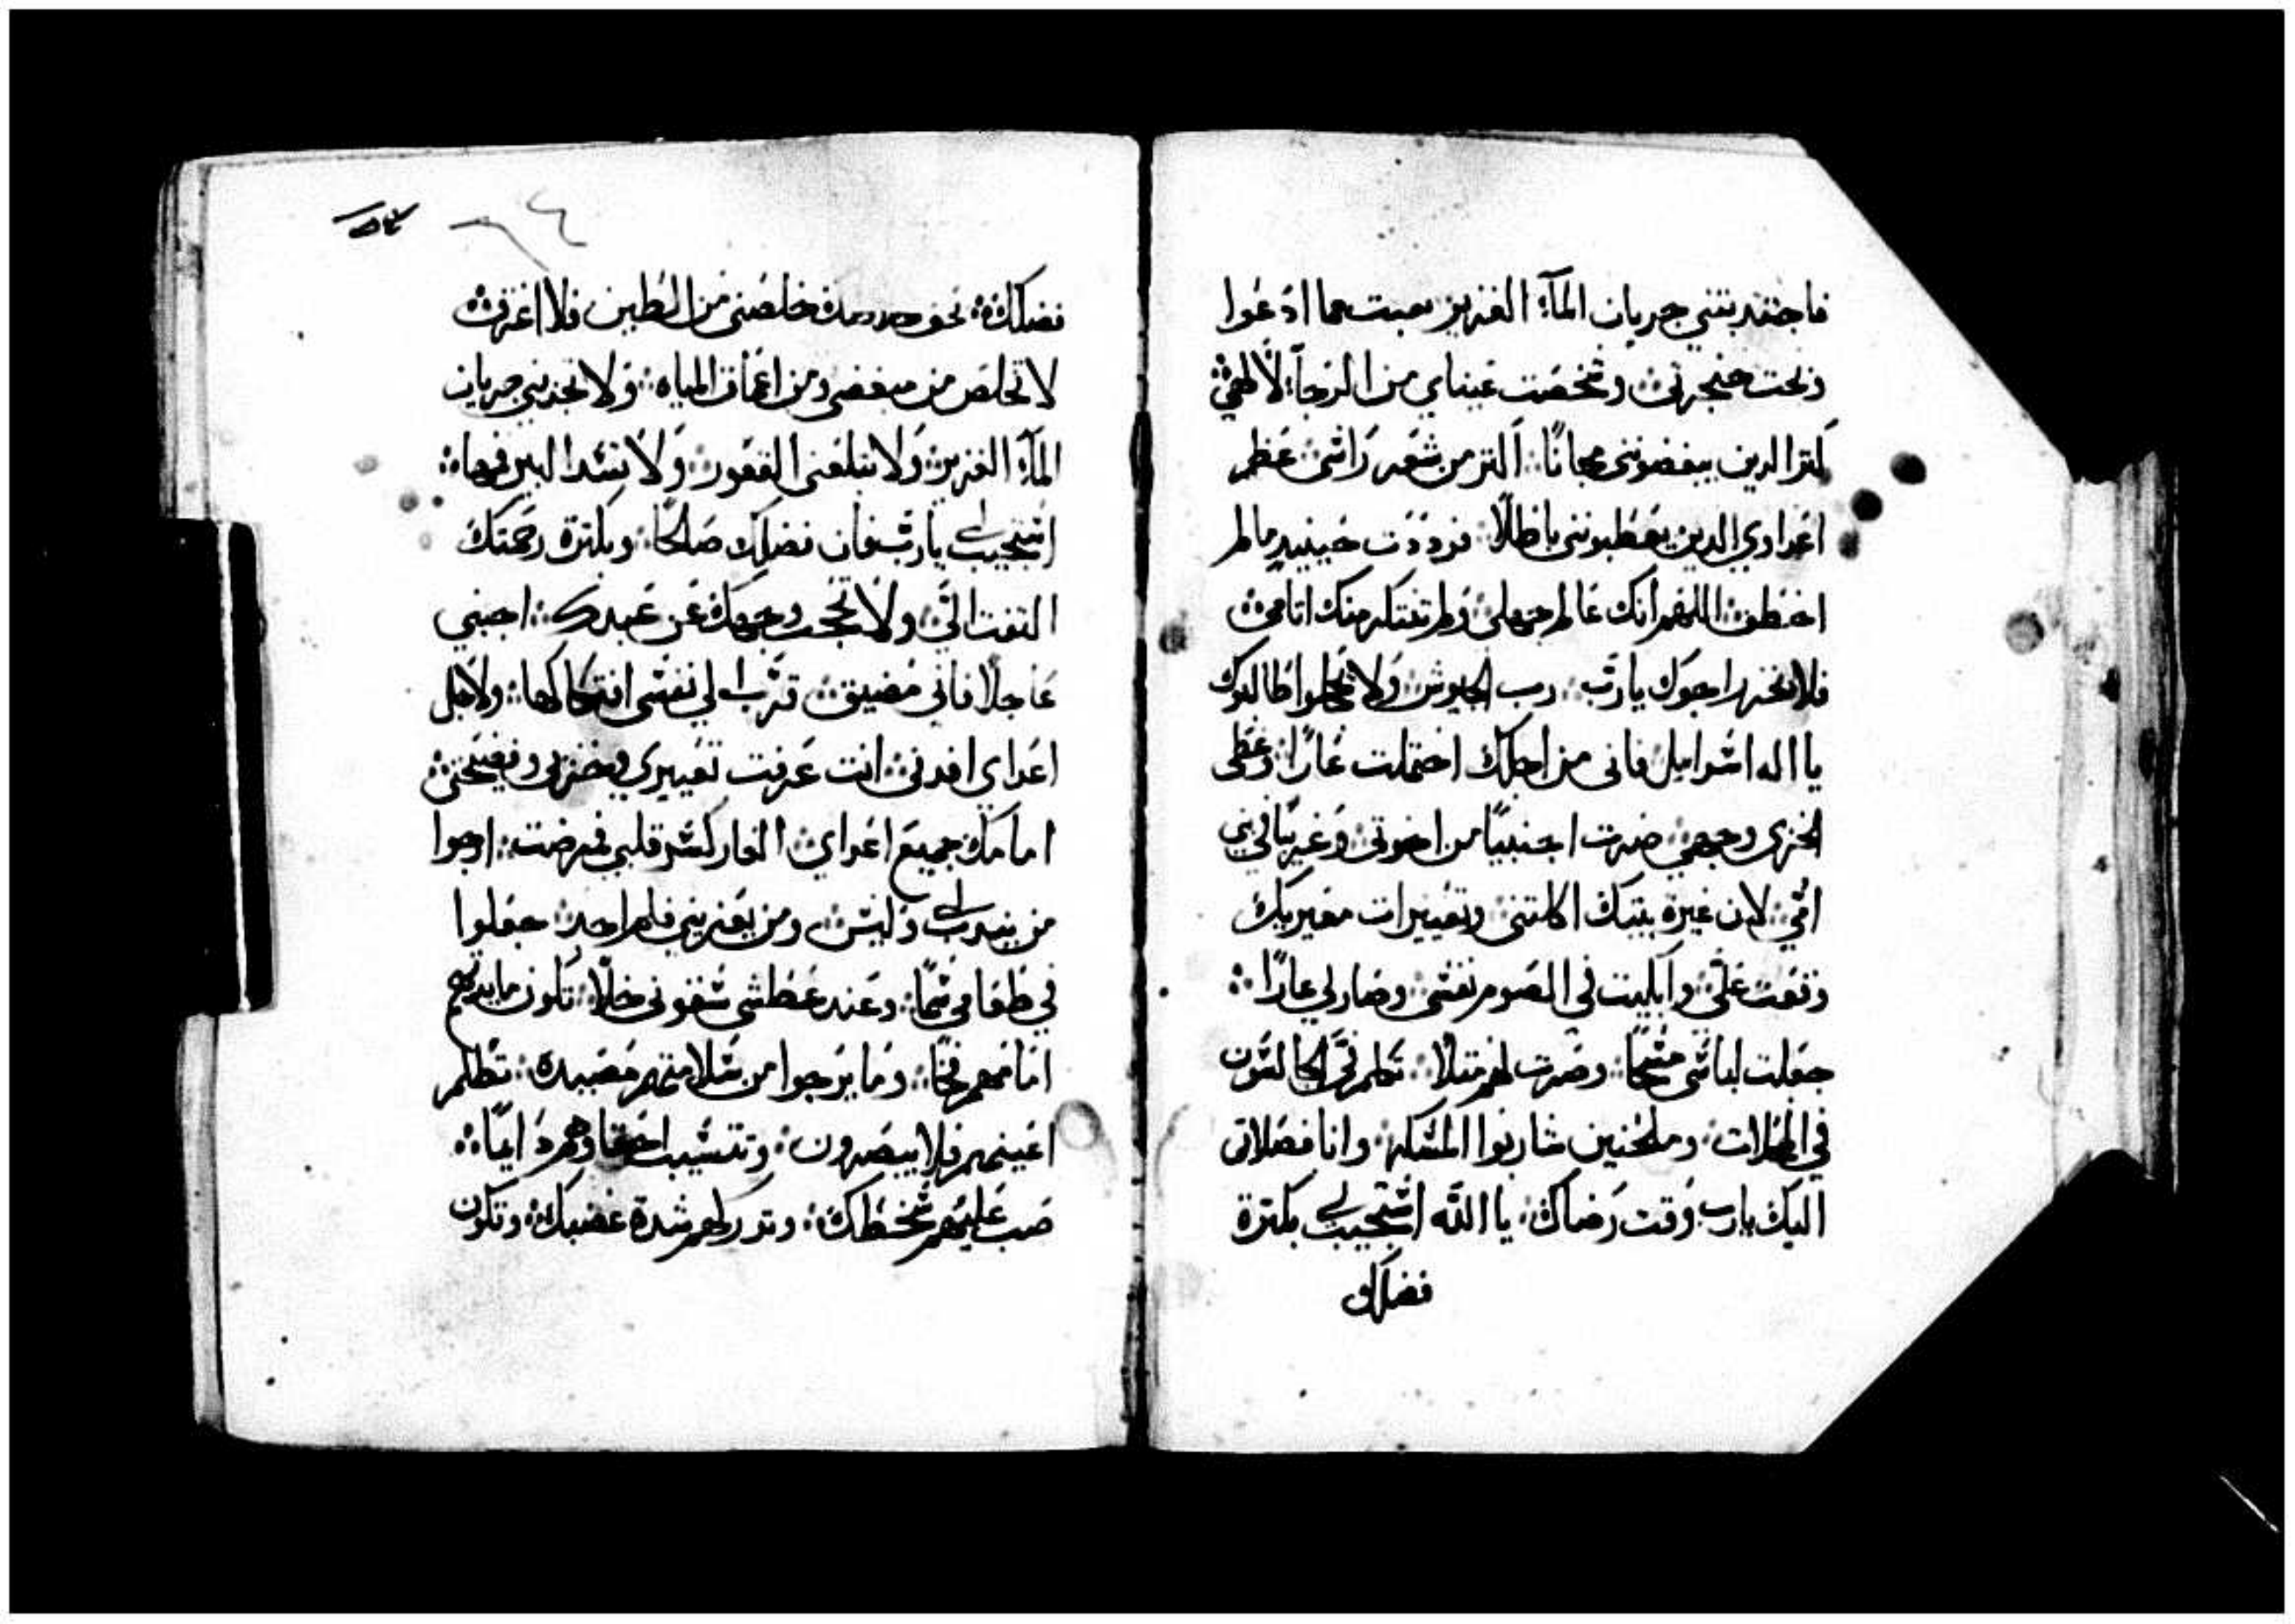 فاجتذبتني جريان المآء الغزير تعبت مما ادعوا
وبحت حنجرتي وشخصت عيناي من الرجآء لالهي
كثر الدين يبغضونني مجانًا اكثر من شعر راسي عظم
اعداوي الدين يعطبونني باطلًا فرددت حينيد مالم
اخطف اللهم انك عالم جهلي ولم تفتكر منك اتامي
فلا يخزا راجوك يا رب رب الجيوش ولا يخجلوا طالبوك
يا اله اسرايل فاني من اجلك احتملت عارًا وغطى
الخزي وجهي صرت اجنبيًا من اخوتي وغريبًا في بني
امي لان غيرة بيتك اكلتني وتعييرات معيريك
وقعت علي وابليت في الصوم نفسي وصار لي عارًا
جعلت لباسي مسحًا وصرت لهم متلًا تكلم في الجالسون
في المحلات وملحنين شاربوا المسكر وانا فصلاتي
اليك يارب وقت رضاك يا الله استجيب لي بكترة
فضلك
فضلك بحق خلصني من الطين فلا اغرق
لاتخلص من مبغضي ومن اعماق المياه ولا تجذبني جريان
المآء الغزير ولا يبتلعني القعور ولا تسد البير فمها
استجيب لي يا رب فان فضلك صالحًا وبكترة رحمتك
التفت الي ولا تحجب وجهك عن عبدك اجبني
عاجلًا فاني مضيق قرب الى نفسي افتكاكها ولاجل
اعداي افدني انت عرفت تعييري وخزيي وفضيحتي
امامك جميع اعداي العار كسر قلبي فمرضت ارجوا
من يندب لي وليس ومن يعزيني فلم اجد جعلوا
في طعامي سمًا وعند عطشي سقوني خلًا تكون مايدتهم
امامهم فخًا وما يرجوا من سلامتهم مصيده تظلم
اعينهم فلا يبصرون وتتسيب احقاوهم دايمًا
صب عليهم سخطك وتدركهم شدة غضبك وتكون